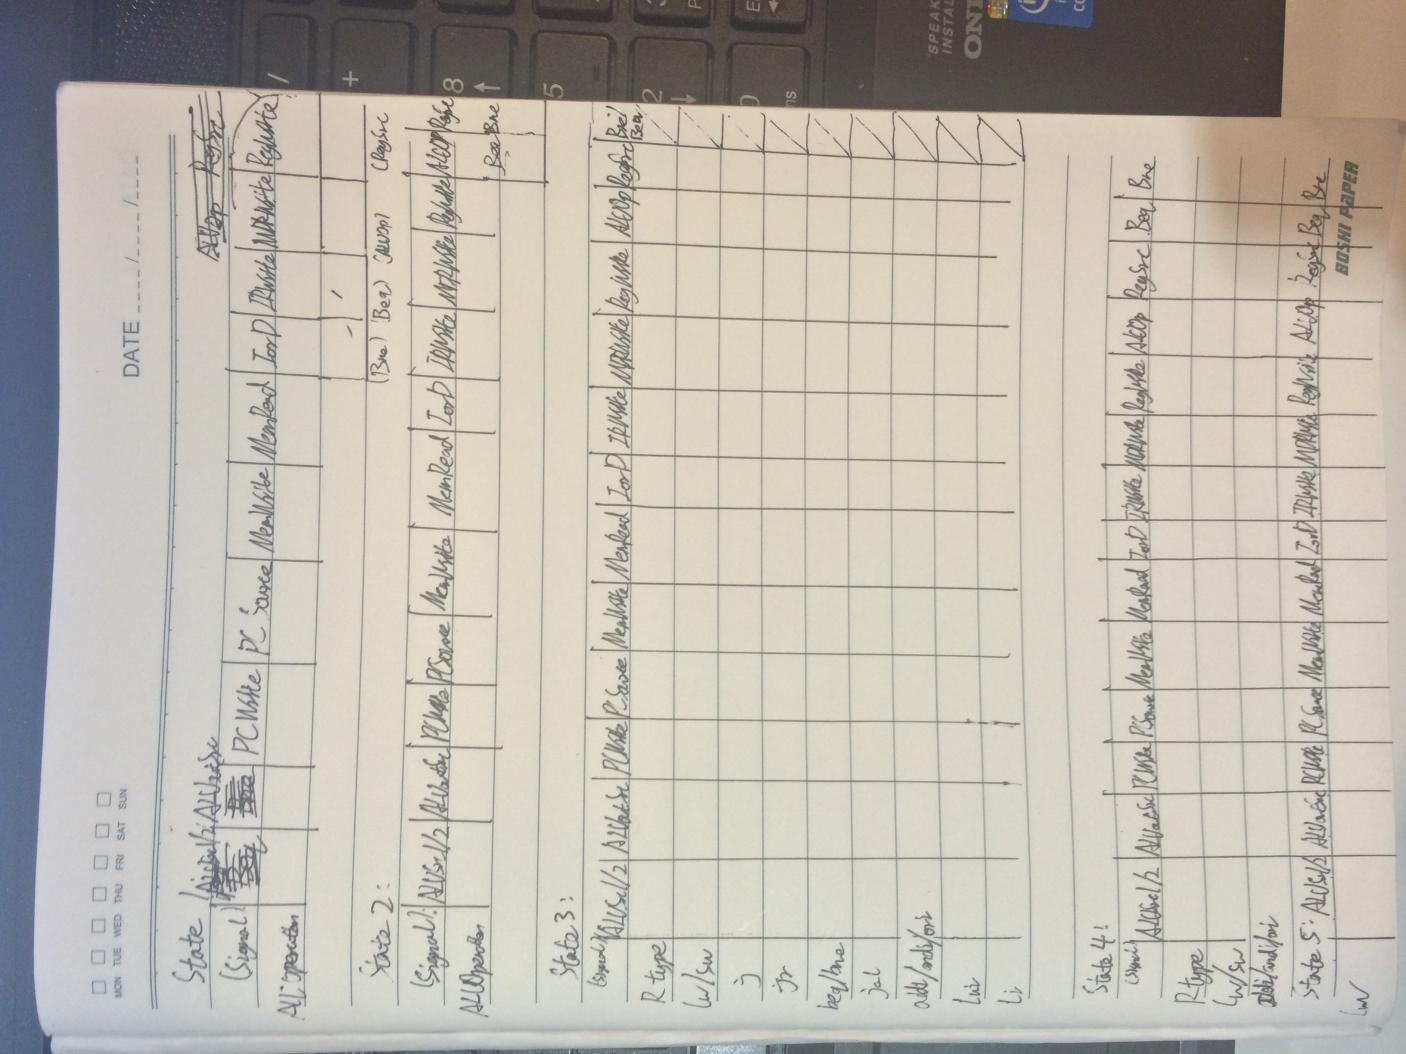 DATE ____/____/____
MON TUE WED THU FRI SAT SUN
State 1: ALUSrc1/2 ALUoutSrc
(Signal) PCWrite PC Source MemWrite MemRead IorD IRWrite MDRWrite RegWrite
ALU operation
(Bne) (Beq) (ALUOp) (RegSrc
State 2:
(Signal): ALUSrc1/2 ALUoutSrc PCWrite PCSource MemWrite MemRead IorD IRWrite MDRWrite RegWrite ALUOp RegSrc
ALU Operation Beq Bne
State 3:
(Signal) ALUSrc1/2 ALUoutSrc PCWrite PC Source MemWrite MemRead IorD IRWrite MDRWrite RegWrite ALUOp RegSrc Bne/Beq
R type
lw/sw
j
jr
beq/bne
jal
addi/andi/ori
lui
li
State 4:
(Signal) ALUSrc1/2 ALUoutSrc PCWrite PCSource MemWrite MemRead IorD IRWrite MDRWrite RegWrite ALUOp RegSrc Beq Bne
R type
lw/sw
addi/andi/ori
State 5: ALUSrc1/2 ALUoutSrc PCWrite PCSource MemWrite MemRead IorD IRWrite MDRWrite RegWrite ALUOp RegSrc Beq Bne
lw
BOSHI PAPER
SPEAK
INSTAL
ON